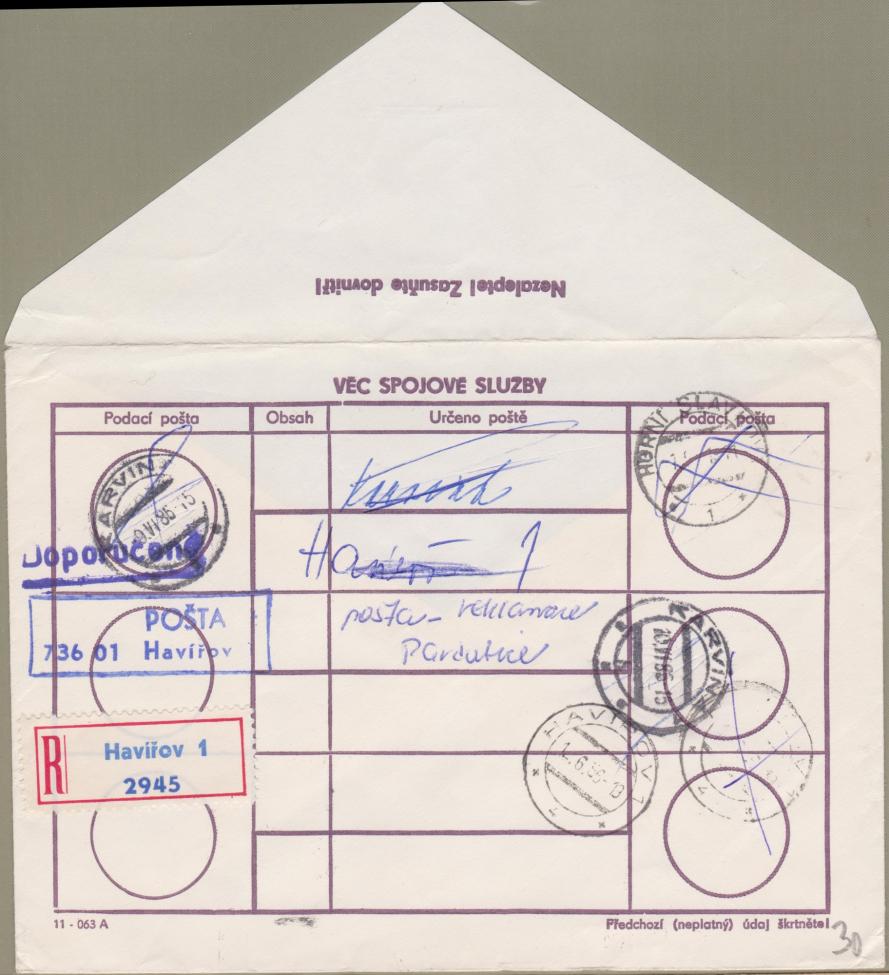 Nezalepte! Zasuňte dovnitř!
VĚC SPOJOVÉ SLUŽBY
Podací pošta Obsah Určeno poště Podací pošta
KARVINÁ
HORNÍ
1
9.VI.86-15
Doporučeně
Ha 1
pošta - reklamace
Pardubice
POŠTA
736 01 Havířov
KARVINÁ
HAVÍŘOV 1
.6.86-13
z
R
Havířov 1
2945
11 - 063 A
Předchozí (neplatný) údaj škrtněte!
30